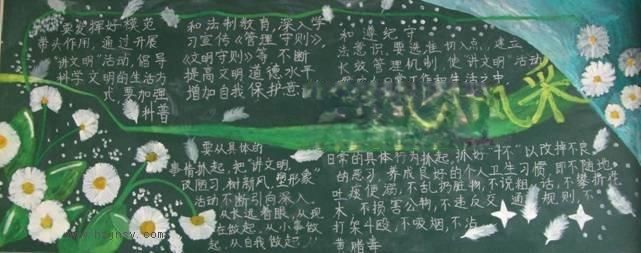 要发挥好模范
带头作用，通过开展
"讲文明"活动，倡导
科学文明的生活方
式，要加强
科普
和法制教育，深入学
习宣传《管理守则》、
《文明守则》等，不断
提高文明道德水平
增加自我保护意
和遵纪守
法意识。要选准切入点，建立
长效管理机制，使"讲文明"活动
日常工作和生活之中
要从具体的
事情抓起，把"讲文明，
改陋习，树新风，塑形象"
活动不断引向深入。
从长远着眼，从现
在做起，从小事做
起，从自我做起！
日常的具体行为抓起，抓好"十不"以改掉不良
的恶习，养成良好的个人卫生习惯，即不随地
吐痰便溺，不乱扔脏物，不说粗话，不攀折花
木，不损害公物，不违反交通规则，不
打架斗殴，不吸烟，不沾
黄赌毒